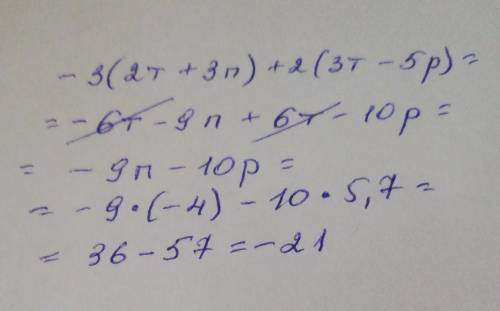 -3(2т+3п)+2(3т-5р)=
=-6т-9п+6т-10р=
=-9п-10р=
=-9•(-4)-10•5,7=
=36-57=-21